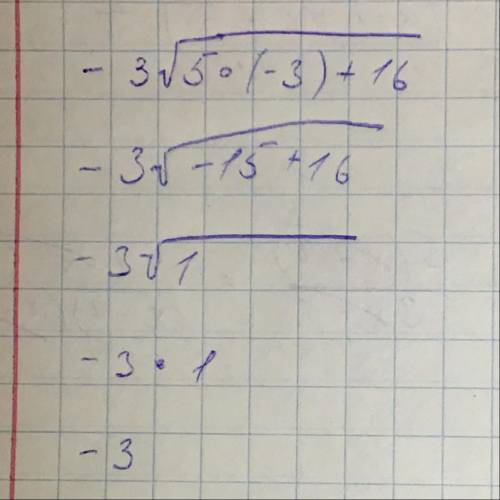 - 3√5•(-3)+16
- 3√-15+16
- 3√1
- 3 • 1
- 3